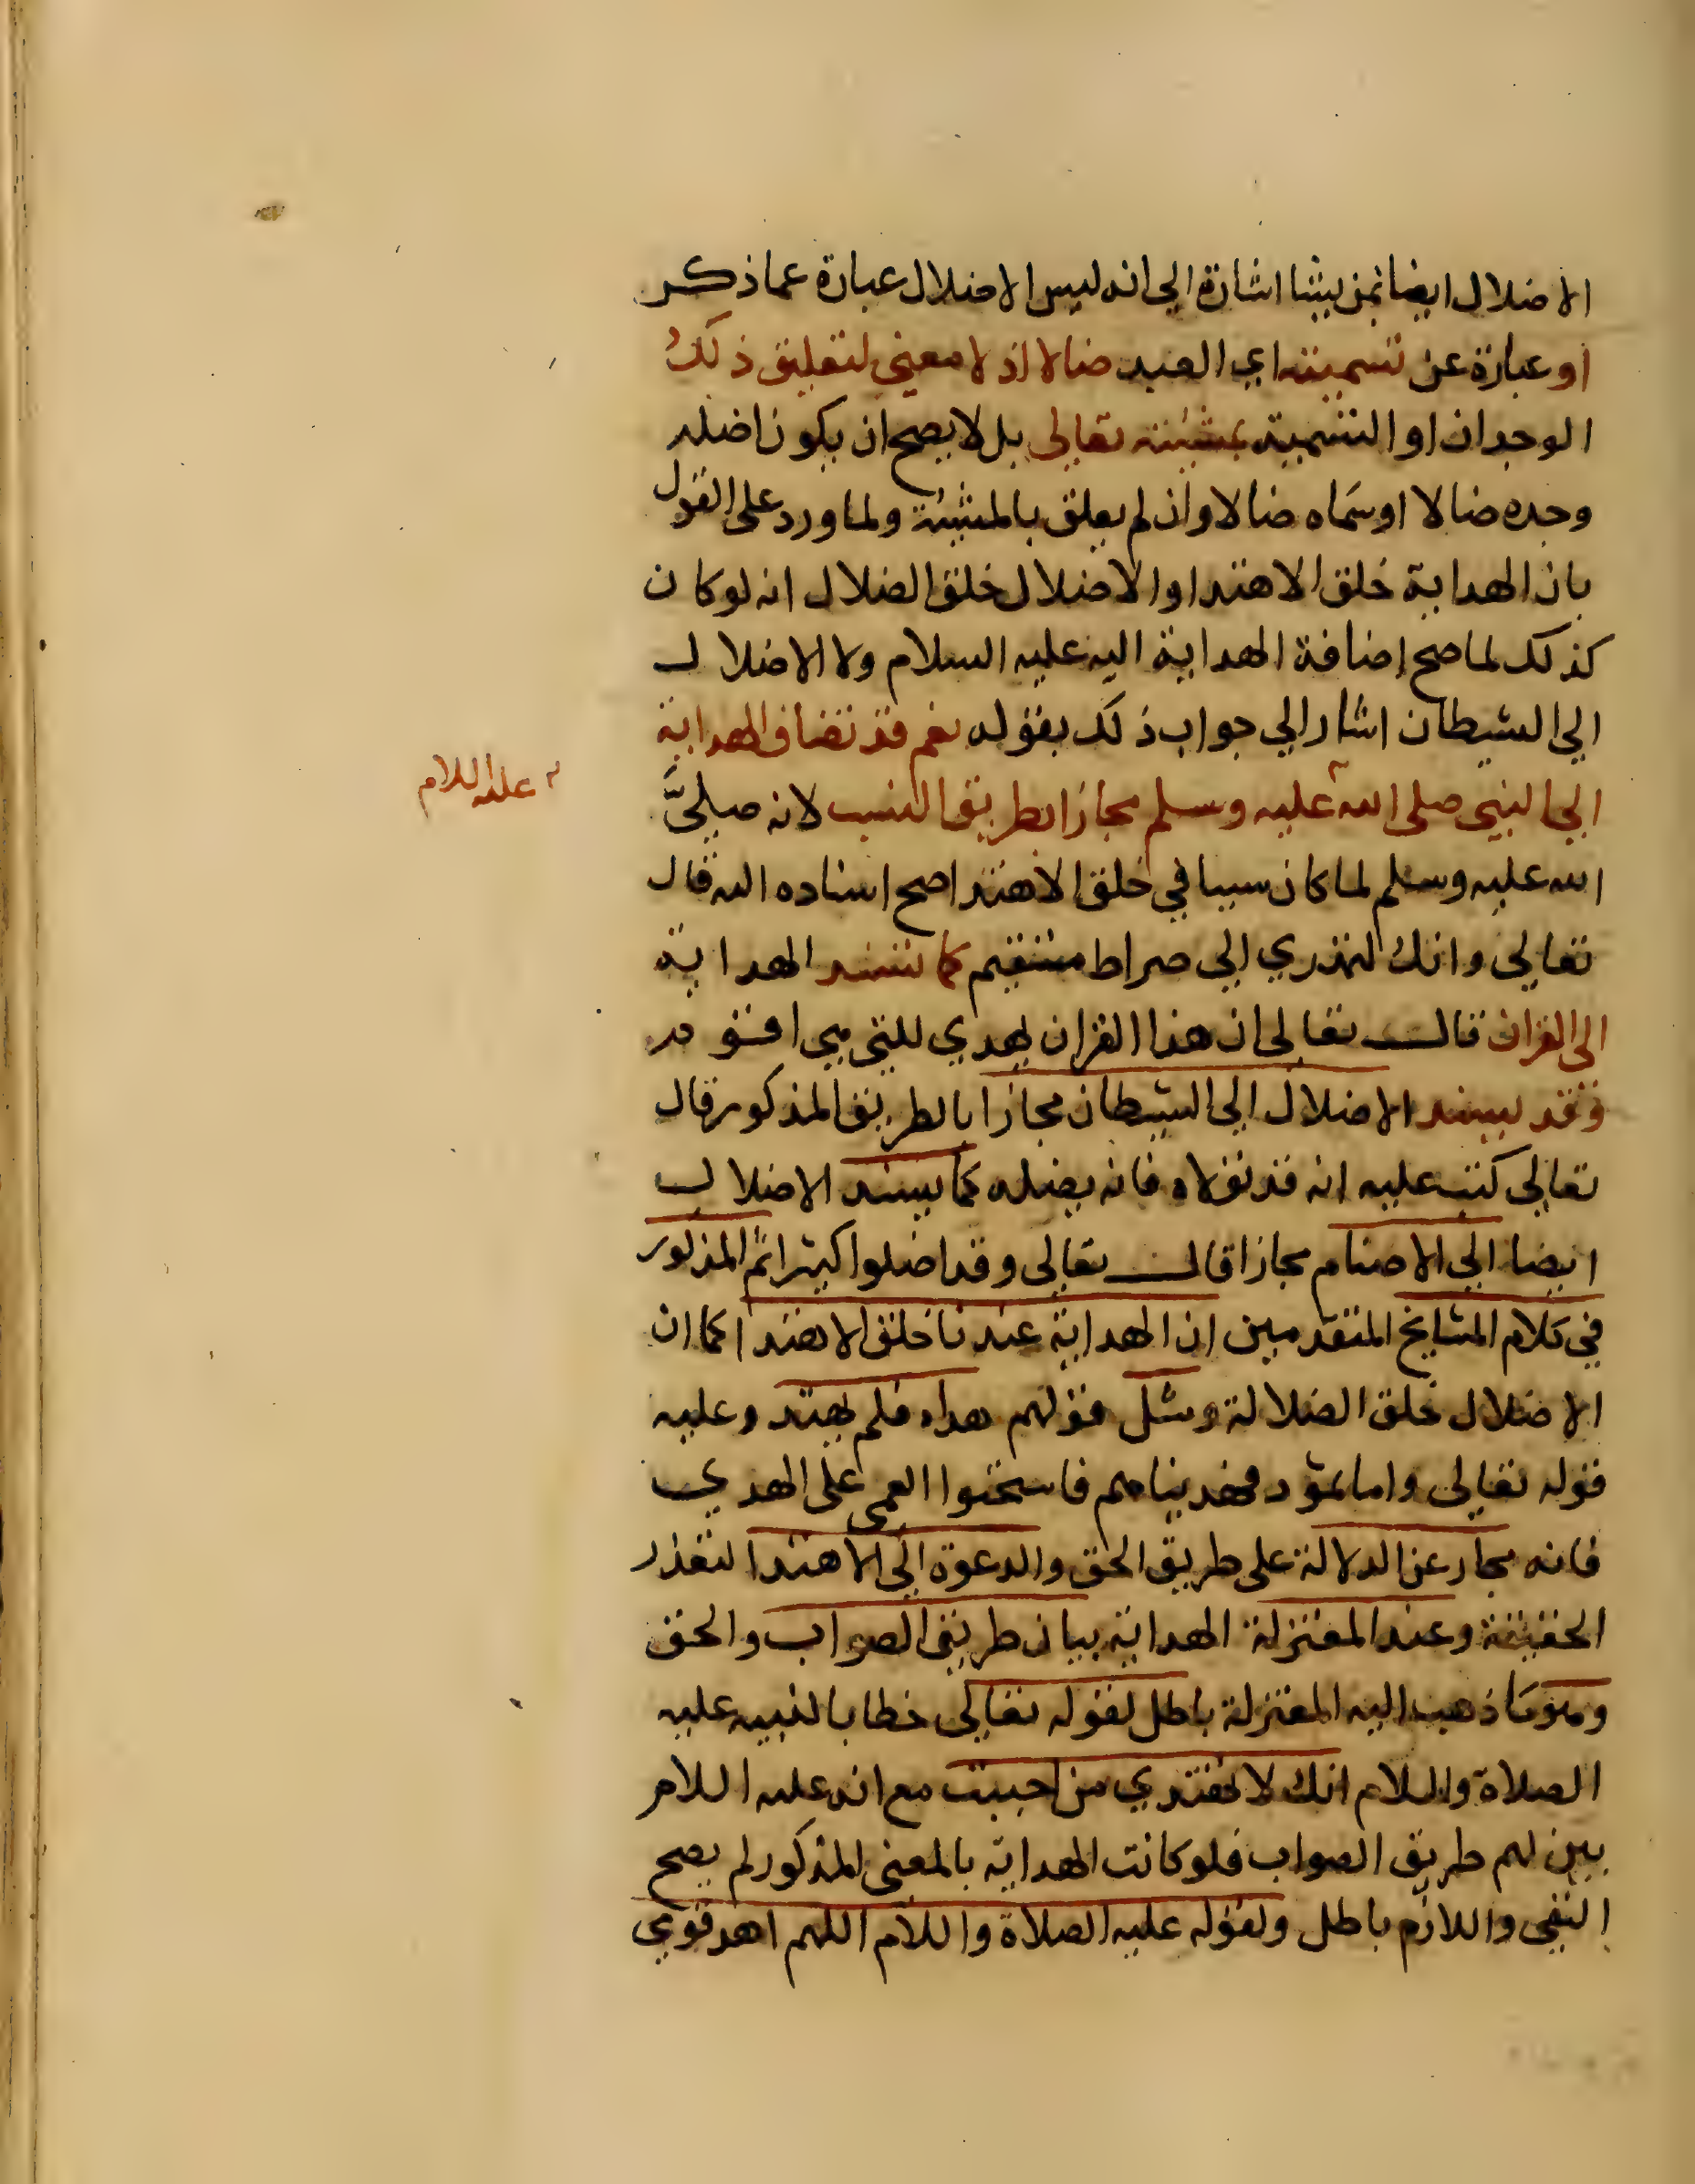 الاضلال ايضا بمن يشا اشارة الي انه ليس الاضلال عبارة عما ذكر
او عبارة عن تسميته اي العبد ضالا اذ لا معني لتعليق ذلك
الوجدان او التسمية بمشيئته تعالي بل لا يصح ان يكون اضله
وجده ضالا او سماه ضالا وان لم يعلق بالمشيئة ولما ورد علي القول
بان الهداية خلق الاهتدا والاضلال خلق الضلال انه لو كان
كذلك لما صح اضافة الهداية اليه عليه السلام ولا الاضلال
الي الشيطان اشار الي جواب ذلك بقوله نعم قد تضاف الهداية
الي النبي صلي الله عليه وسلم مجازا بطريق التسبب لانه صلي
عليه اللام
الله عليه وسلم لما كان سببا في خلق الاهتدا صح اسناده اليه قال
تعالي وانك لتهدي الي صراط مستقيم كما تسند الهداية
الي القران قال تعالي ان هذا القران يهدي للتي هي اقوم
وقد يسند الاضلال الي الشيطان مجازا بالطريق المذكور قال
تعالي كتب عليه انه قد تولاه فانه يضله كما يسند الاضلال
ايضا الي الاصنام مجازا قال تعالي وقد اضلوا كثيرا ثم المذكور
في كلام المشايخ المتقدمين ان الهداية عندنا خلق الاهتدا كما ان
الاضلال خلق الضلالة ومثل قولهم هداه فلم يهتد وعليه
قوله تعالي واما ثمود فهديناهم فاستحبوا العمي علي الهدي
فانه مجاز عن الدلالة علي طريق الحق والدعوة الي الاهتدا لتعذر
الحقيقة وعند المعتزلة الهداية بيان طريق الصواب والحق
وهو ما ذهب اليه المعتزلة باطل لقوله تعالي خطابا لنبيه عليه
الصلاة واللام انك لا تهتدي من احببت مع انه عليه اللام
بين لهم طريق الصواب فلو كانت الهداية بالمعني المذكور لم يصح
النفي واللازم باطل ولقوله عليه الصلاة واللام اللهم اهد قومي